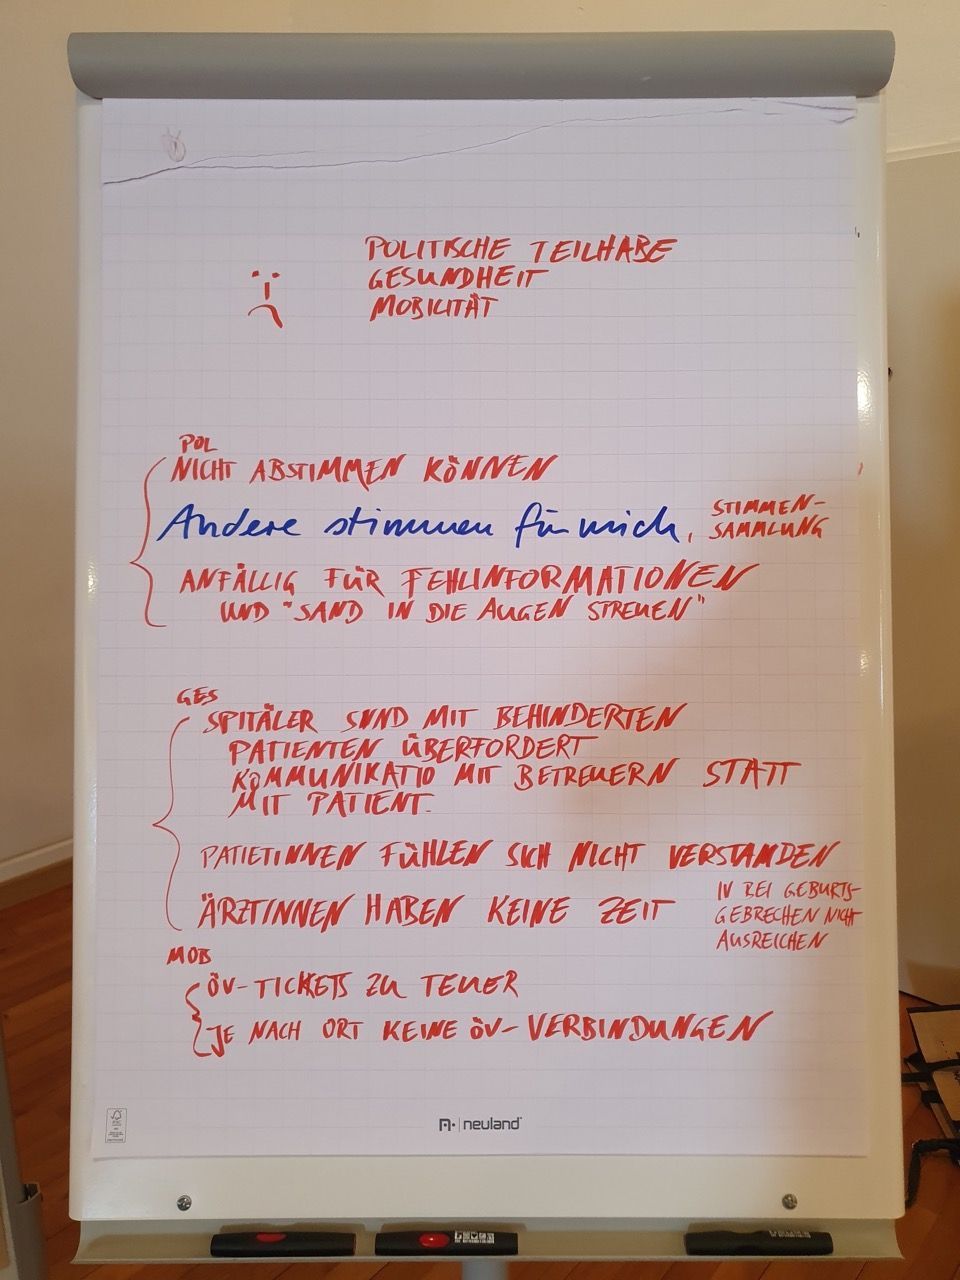 POLITISCHE TEILHABE
GESUNDHEIT
MOBILITÄT
POL
NICHT ABSTIMMEN KÖNNEN
Andere stimmen für mich, STIMMEN-
SAMMLUNG
ANFÄLLIG FÜR FEHLINFORMATIONEN
UND "SAND IN DIE AUGEN STREUEN"
GES
SPITÄLER SIND MIT BEHINDERTEN
PATIENTEN ÜBERFORDERT
KOMMUNIKATIO MIT BETREUERN STATT
MIT PATIENT.
PATIETINNEN FÜHLEN SICH NICHT VERSTANDEN
ÄRZTINNEN HABEN KEINE ZEIT
IV BEI GEBURTS-
GEBRECHEN NICHT
AUSREICHEN
MOB
ÖV-TICKETS ZU TEUER
JE NACH ORT KEINE ÖV-VERBINDUNGEN
neuland